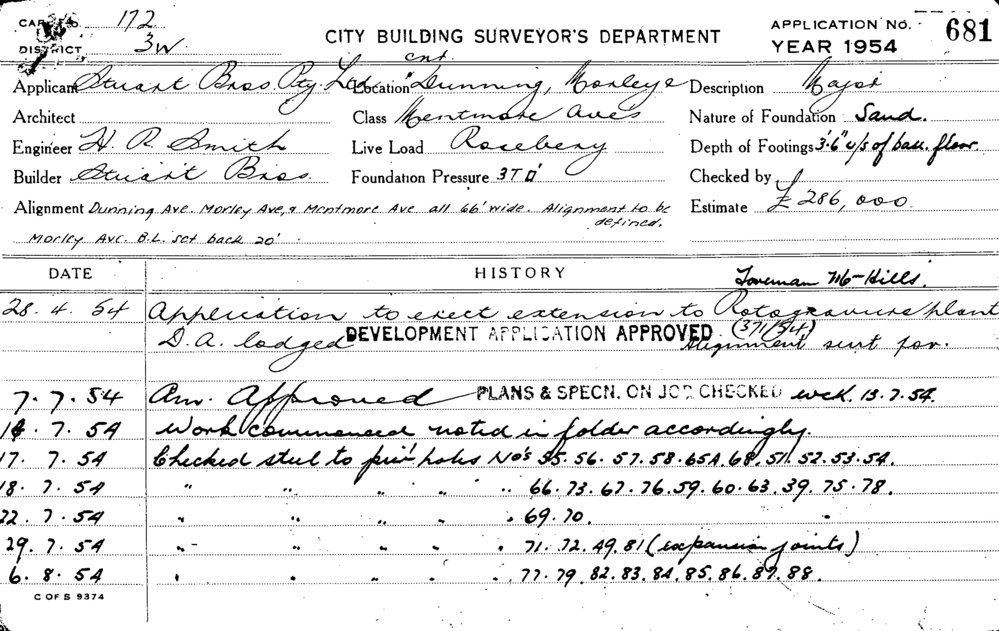 CARD No. 172
DISTRICT 3W
CITY BUILDING SURVEYOR'S DEPARTMENT
APPLICATION No. 681
YEAR 1954
Applicant Stuart Bros Pty Ltd
Location cnr. Dunning, Morley &
Description Major
Architect
Class Mentmore Aves
Nature of Foundation Sand.
Engineer H. R. Smith
Live Load Rosebery
Depth of Footings 3'.6" u/s of base. floor
Builder Stuart Bros.
Foundation Pressure 3T
Checked by
Estimate £286,000
Alignment Dunning Ave. Morley Ave, & Mentmore Ave all 66' wide. Alignment to be defined.
Morley Ave. B.L. set back 20'
DATE HISTORY Foreman Mr Hills.
28. 4. 54 Application to erect extension to Rotogravure plant
D.A. lodged DEVELOPMENT APPLICATION APPROVED. (371/54) Alignment sent for.
7. 7. 54 Am. Approved PLANS & SPECN. ON JOB CHECKED 13.7.54.
14. 7. 54 Work commenced noted in folder accordingly.
17. 7. 54 Checked steel to pier holes No's 55. 56. 57. 58. 65A. 68. 51. 52. 53. 54.
18. 7. 54 " " " " " 66. 73. 67. 76. 59. 60. 63. 39. 75. 78.
22. 7. 54 " " " " " 69. 70.
29. 7. 54 " " " " " 71. 72. 49. 81 (expansion joints)
6. 8. 54 " " " " " 77. 79. 82. 83. 84. 85. 86. 87. 88.
C OF S 9374